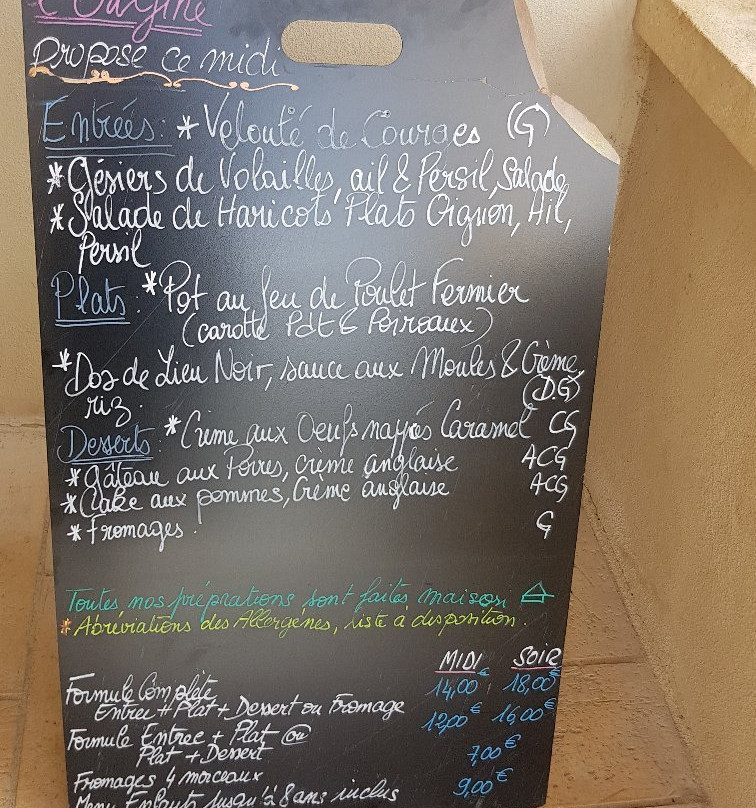 L'Origine
Propose ce midi
Entrées: * Velouté de Courges (G)
* Gésiers de Volailles, ail & Persil, Salade
* Salade de Haricots Plats Oignon, Ail,
Persil
Plats: * Pot au feu de Poulet Fermier
(carotte Pdt & Poireaux)
* Dos de Lieu Noir, sauce aux Moules & Crème,
riz. (D.G)
Desserts: * Crème aux Oeufs nappés Caramel CG
* Gâteau aux Poires, crème anglaise ACG
* Cake aux pommes, Crème anglaise ACG
* Fromages. G
Toutes nos préprations sont faites maison
* Abréviations des Allergènes, liste à disposition.
MIDI SOIR
Formule Complète 14,00€ 18,00€
Entrée + Plat + Dessert ou Fromage
Formule Entrée + Plat ou 12,00€ 16,00€
Plat + Dessert
Fromages 4 morceaux 7,00€
Menu Enfants jusqu'à 8 ans inclus 9,00€